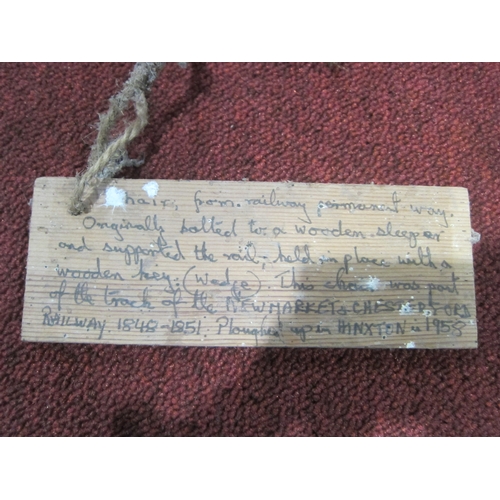 Chair, from railway permanent way.
Originally bolted to a wooden sleeper
and supported the rail, held in place with a
wooden key. (Wedge). This chair was part
of the track of the NEWMARKET & CHESTERFORD
RAILWAY. 1848-1851. Ploughed up in HINXTON in 1958